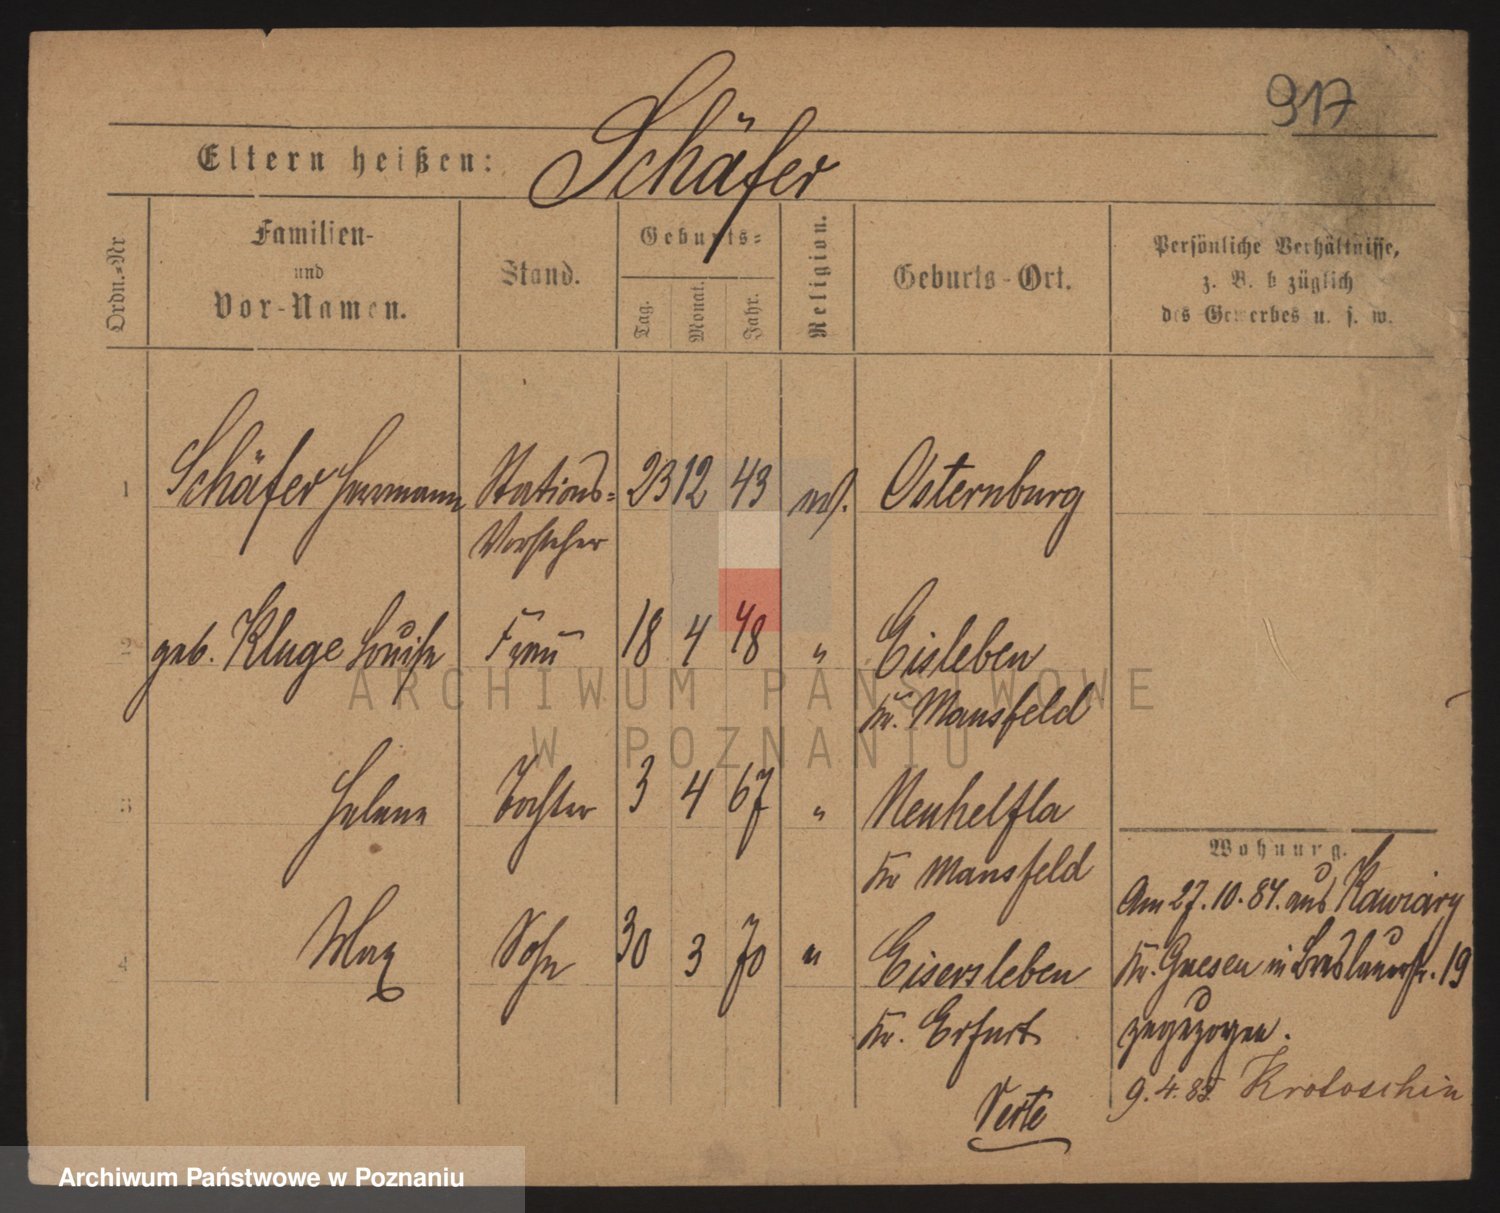 917
Eltern heißen: Schäfer
Ordn.-Nr
Familien-
und
Vor-Namen.
Stand.
Geburts-
Tag.
Monat.
Jahr.
Religion.
Geburts-Ort.
Persönliche Verhältnisse,
z. B. b züglich
des Gewerbes u. s. w.
1 Schäfer Herrmann Stations- 23 12 43 Osternburg
Vorsteher
2 geb. Kluge Louise Frau 18 4 48 " Eisleben
Kr. Mansfeld
3 Helene Tochter 3 4 67 " Neuhelfta
Kr Mansfeld
Wohnung.
4 Max Sohn 30 3 70 " Eisersleben
Kr. Erfurt
Am 27.10.84. aus Kawiary
Kr. Gnesen in Breslauerstr. 19
zugezogen.
9.4.85 Krotoschin
Verte
ARCHIWUM PAŃSTWOWE
W POZNANIU
Archiwum Państwowe w Poznaniu